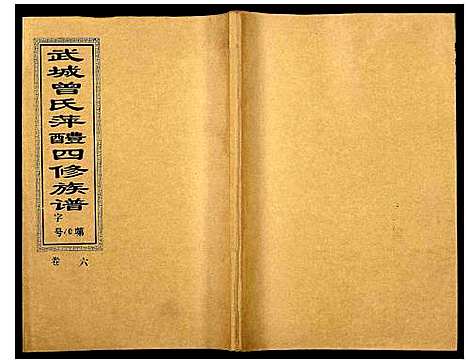 武城曾氏萍醴四修族谱
字
第10号
卷六